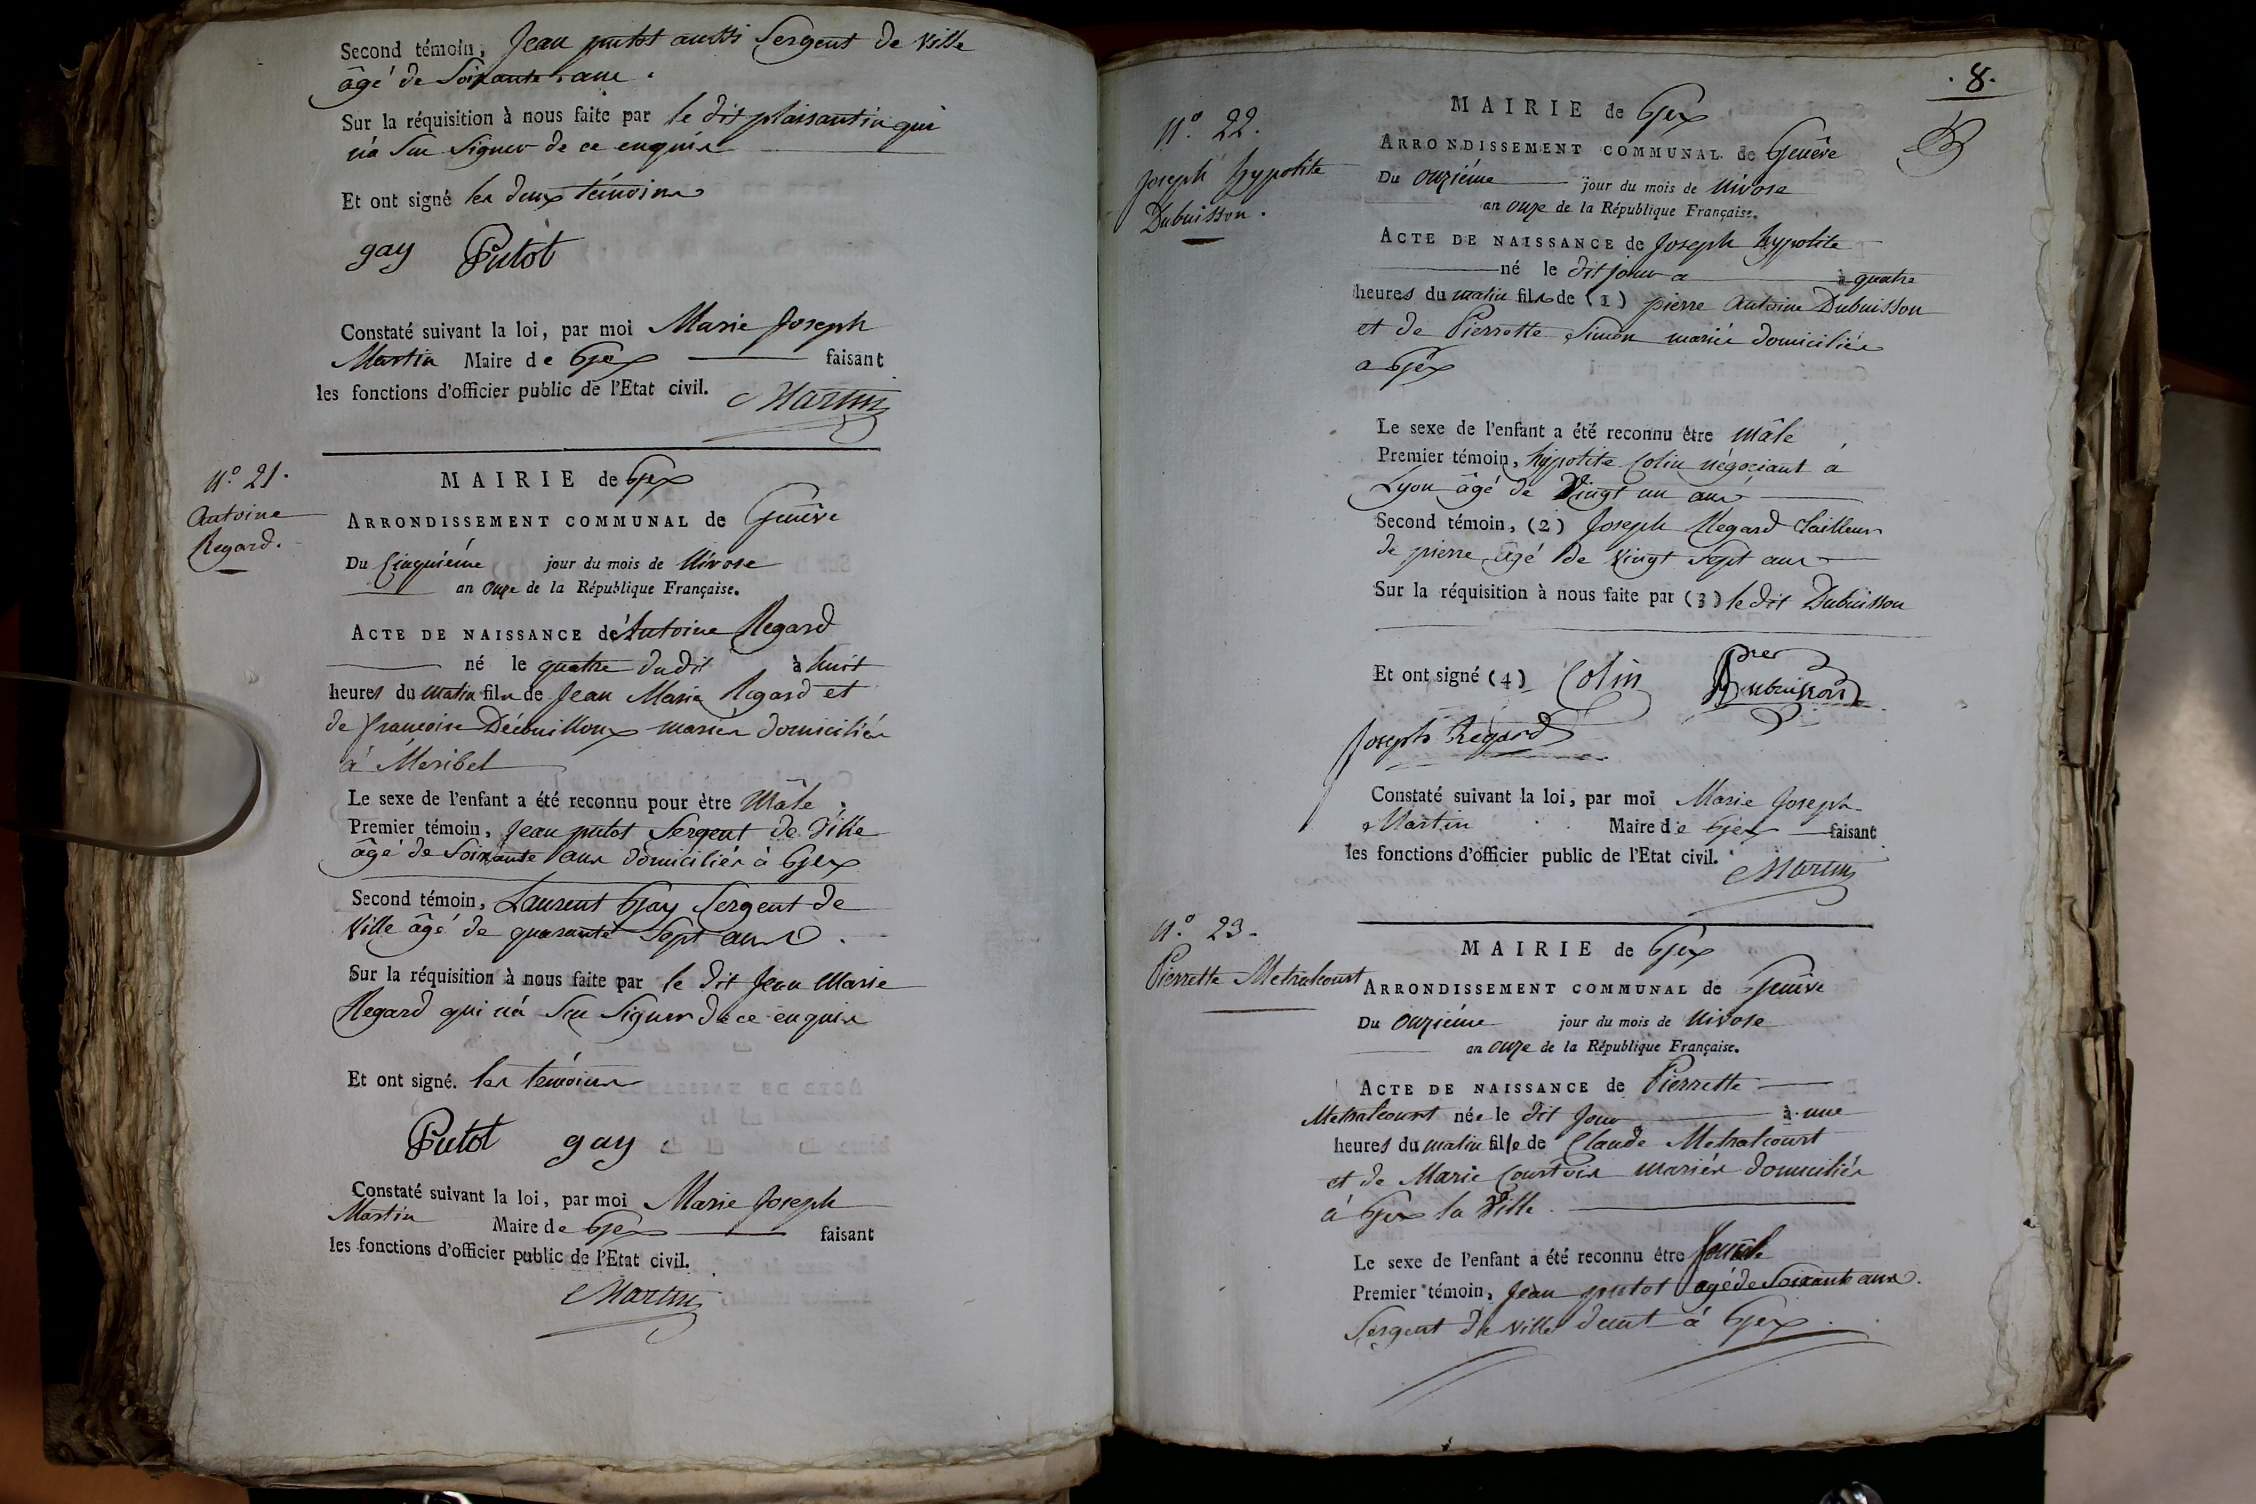 Second témoin, Jean putot aussi Sergent de Ville
âgé de Soixante ans.
Sur la réquisition à nous faite par le dit plaisantin qui
n'a Sçu Signer de ce enquis
Et ont signé les deux témoins
gay Putot
Constaté suivant la loi, par moi Marie Joseph
Martin Maire de Gex faisant
les fonctions d'officier public de l'Etat civil. Martin
N.° 21.
Antoine
Regard.
MAIRIE de Gex
ARRONDISSEMENT COMMUNAL de Genêve
Du Cinquiéme jour du mois de Nivose
an Onze de la République Française.
ACTE DE NAISSANCE de Antoine Regard
né le quatre dudit à huit
heures du matin fils de Jean Marie Regard et
de françoise Découilloux mariés domiciliés
à Meribel
Le sexe de l'enfant a été reconnu pour être Mâle.
Premier témoin, Jean putot Sergent de Ville
âgé de Soixante ans domiciliés à Gex
Second témoin, Laurent Gay Sergent de
Ville âgé de quarante Sept ans.
Sur la réquisition à nous faite par le dit Jean Marie
Regard qui n'a Sçu Signer de ce enquis
Et ont signé. les témoins
Putot gay
Constaté suivant la loi, par moi Marie Joseph
Martin Maire de Gex faisant
les fonctions d'officier public de l'Etat civil.
Martin
.8.
N.° 22.
Joseph hypolite
Dubuisson.
MAIRIE de Gex
ARRONDISSEMENT COMMUNAL de Genêve
Du Onziéme jour du mois de Nivose
an onze de la République Française.
ACTE DE NAISSANCE de Joseph hypolite
né le dit jour a à quatre
heures du matin fils de (1) pierre Antoine Dubuisson
et de Pierrette Simon mariés domiciliés
a Gex
Le sexe de l'enfant a été reconnu être Mâle
Premier témoin, hypolite Colin négociant à
Lyon âgé de Vingt un ans
Second témoin, (2) Joseph Regard Tailleur
de pierre âgé de Vingt sept ans
Sur la réquisition à nous faite par (3) le dit Dubuisson
Et ont signé (4) Colin Dubuisson
Joseph Regard
Constaté suivant la loi, par moi Marie Joseph
Martin Maire de Gex faisant
les fonctions d'officier public de l'Etat civil.
Martin
N.° 23.
Pierrette Metralcourt
MAIRIE de Gex
ARRONDISSEMENT COMMUNAL de Genêve
Du Onziéme jour du mois de Nivose
an onze de la République Française.
ACTE DE NAISSANCE de Pierrette
Metralcourt née le dit Jour à une
heures du matin fille de Claude Metralcourt
et de Marie Courtois mariés domiciliés
à Gex la Ville.
Le sexe de l'enfant a été reconnu être
Premier témoin, Jean putot agé de Soixante ans.
Sergent de Ville demt à Gex.